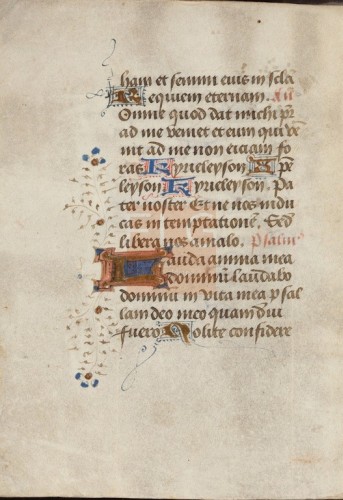 ham et semini eius in scła
Requiem eternam. an̄
Omne quod dat michi pr̄
ad me veniet et eum qui ve
nit ad me non eiciam fo
ras Kyrieleyson Xp̄e
leyson Kyrieleyson. Pa
ter noster Et ne nos indu
cas in temptationē. Sed
libera nos a malo. Psalm9
Lauda anima mea
dominū laudabo
dominū in vita mea psal
lam deo meo quamdiu
fuero Nolite confidere